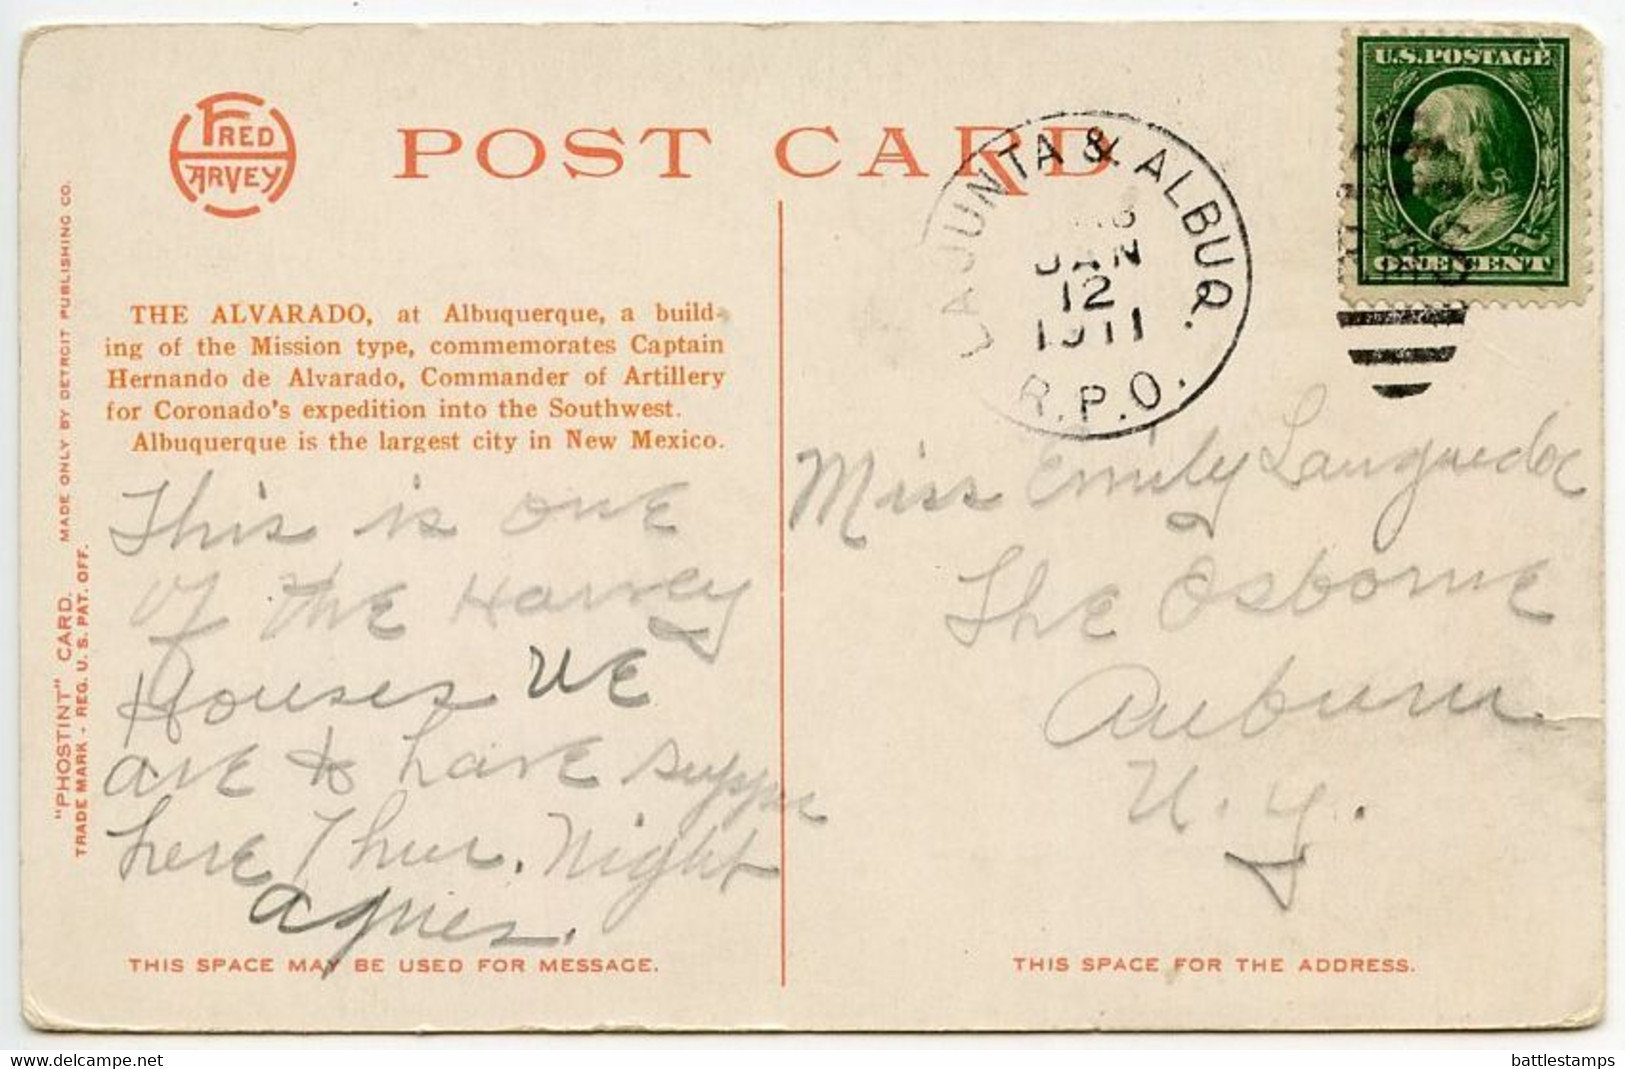 FRED
HARVEY
POST CARD
U.S. POSTAGE
ONE CENT
LA JUNTA & ALBUQ.
JAN
12
1911
R.P.O.
THE ALVARADO, at Albuquerque, a build-
ing of the Mission type, commemorates Captain
Hernando de Alvarado, Commander of Artillery
for Coronado's expedition into the Southwest.
Albuquerque is the largest city in New Mexico.
"PHOSTINT" CARD. MADE ONLY BY DETROIT PUBLISHING CO.
TRADE MARK - REG. U. S. PAT. OFF.
This is one
of the Harvey
Houses we
are to have supper
here Thur. Night
Agnes.
Miss Emily Languedoc
The Osborne
Auburn
N.Y.
THIS SPACE MAY BE USED FOR MESSAGE.
THIS SPACE FOR THE ADDRESS.
the-stamps-collection.com
battlestamps